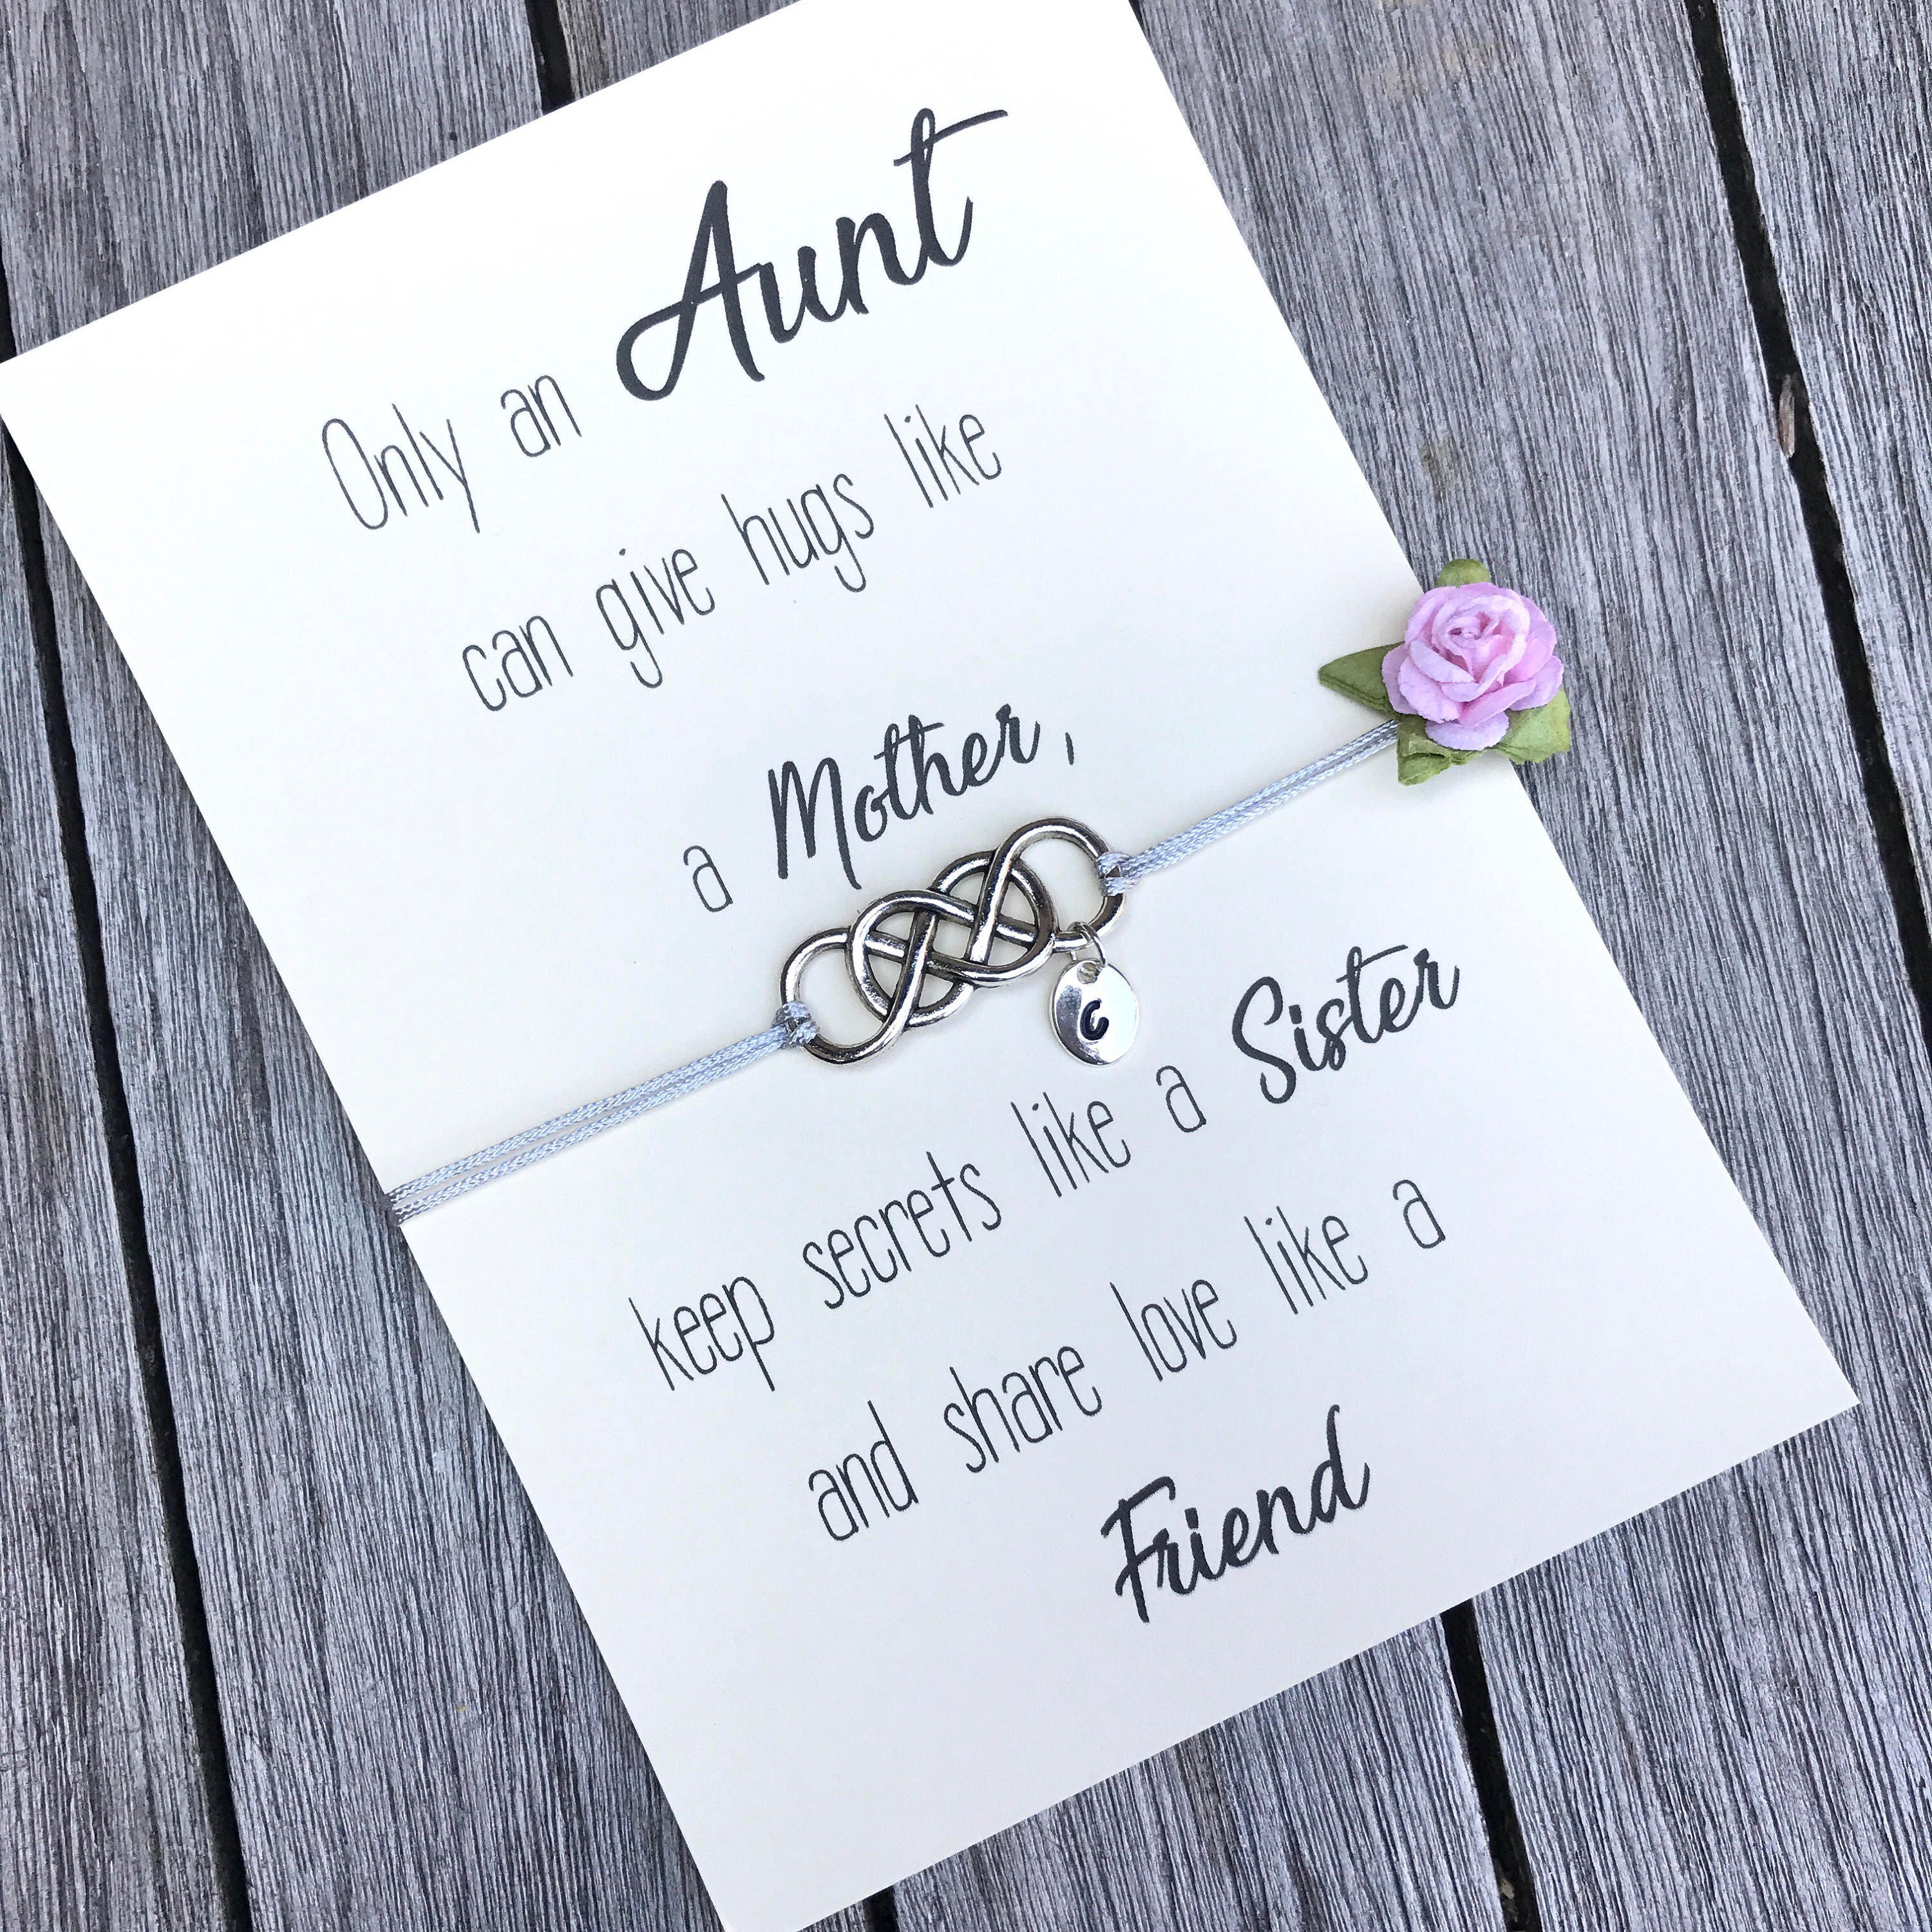 Only an Aunt
can give hugs like
a Mother,
c
keep secrets like a Sister
and share love like a
Friend